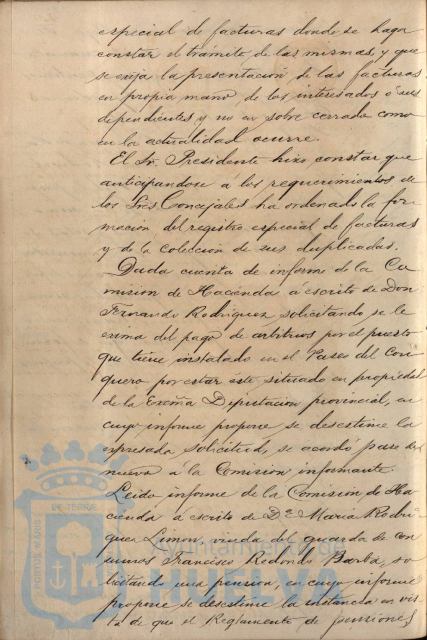 especial de facturas donde se haga
constar el trámite de las mismas, y que
se exija la presentación de las facturas
en propia mano de los interesados ó sus
dependientes y no en sobre cerrado como
en la actualidad ocurre.
El Sr. Presidente hizo constar que
anticipandose a los requerimientos de
los Sres Concejales ha ordenado la for
macion del registro especial de facturas
y de la coleccion de sus duplicadas.
Dada cuenta de informe de la Co
mision de Hacienda á escrito de Don
Fernando Rodriguez solicitando se le
exima del pago de arbitrios por el puesto
que tiene instalado en el Paseo del Con
quero por estar este situado en propiedad
de la Excma Diputacion provincial, en
cuyo informe propone se desestime la
expresada solicitud, se acordó pase de
nuevo á la Comision informante.
Leido informe de la Comision de Ha
cienda á escrito de Dª Maria Rodri
guez Limon, viuda del guarda de con
sumos Francisco Redondo Barba, so
licitando una pension, en cuyo informe
propone se desestime la instancia en vis
ta de que el Reglamento de pensiones
PORTUS MARIS
ET TERRÆ
Ayuntamiento de
HUELVA